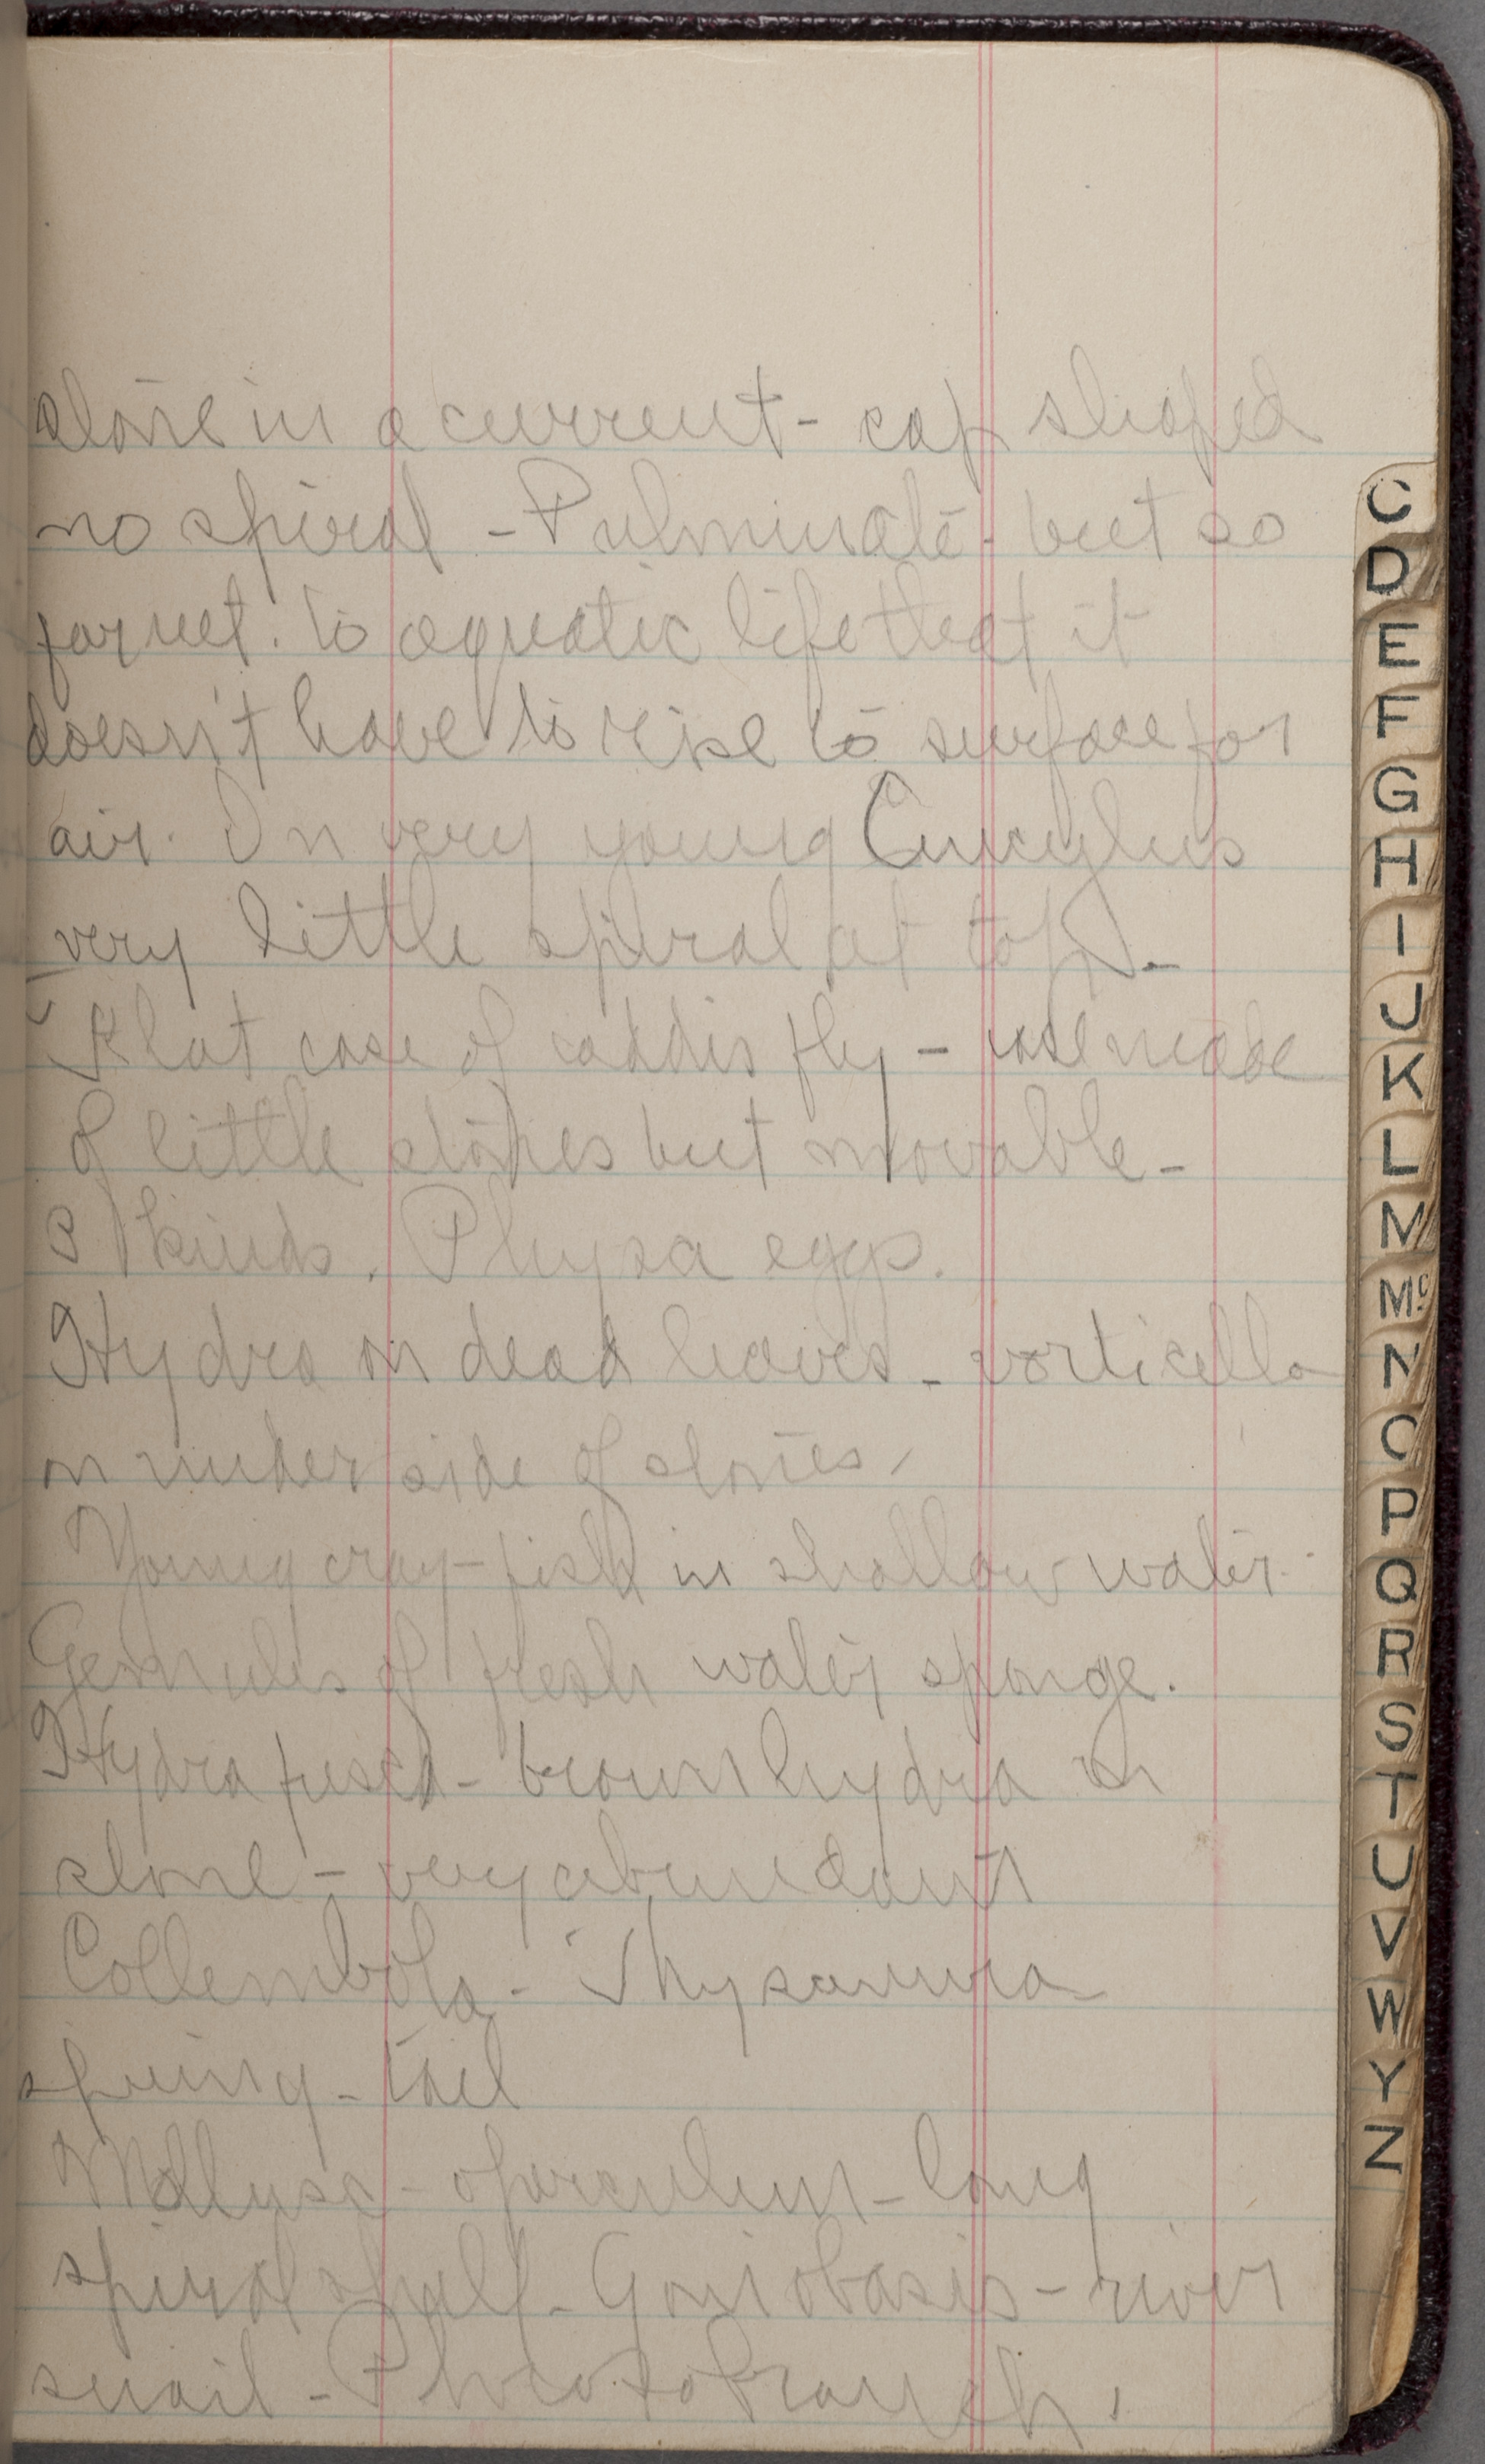 stone in a current - cap shaped
no spiral - Pulminate - but so
far met. to aquatic life that it
doesn't have to rise to surface for
air. In very young Ancylus
very little spiral at top -
Flat case of caddis fly - case made
of little stones but movable -
kinds. Physa eggs.
Hydra on dead leaves - vorticella
on under side of stones.
Young cray-fish in shallow water.
Gemules of fresh water sponge.
Hydra fusca - brown hydra on
stone - very abundant
Collembola - Thysanura
spring - tail
Mollusc - operculum - long
spiral shell - Goniobasis - river
snail -
C
D
E
F
G
H
I
J
K
L
M
Mc
N
O
P
Q
R
S
T
U
V
W
Y
Z